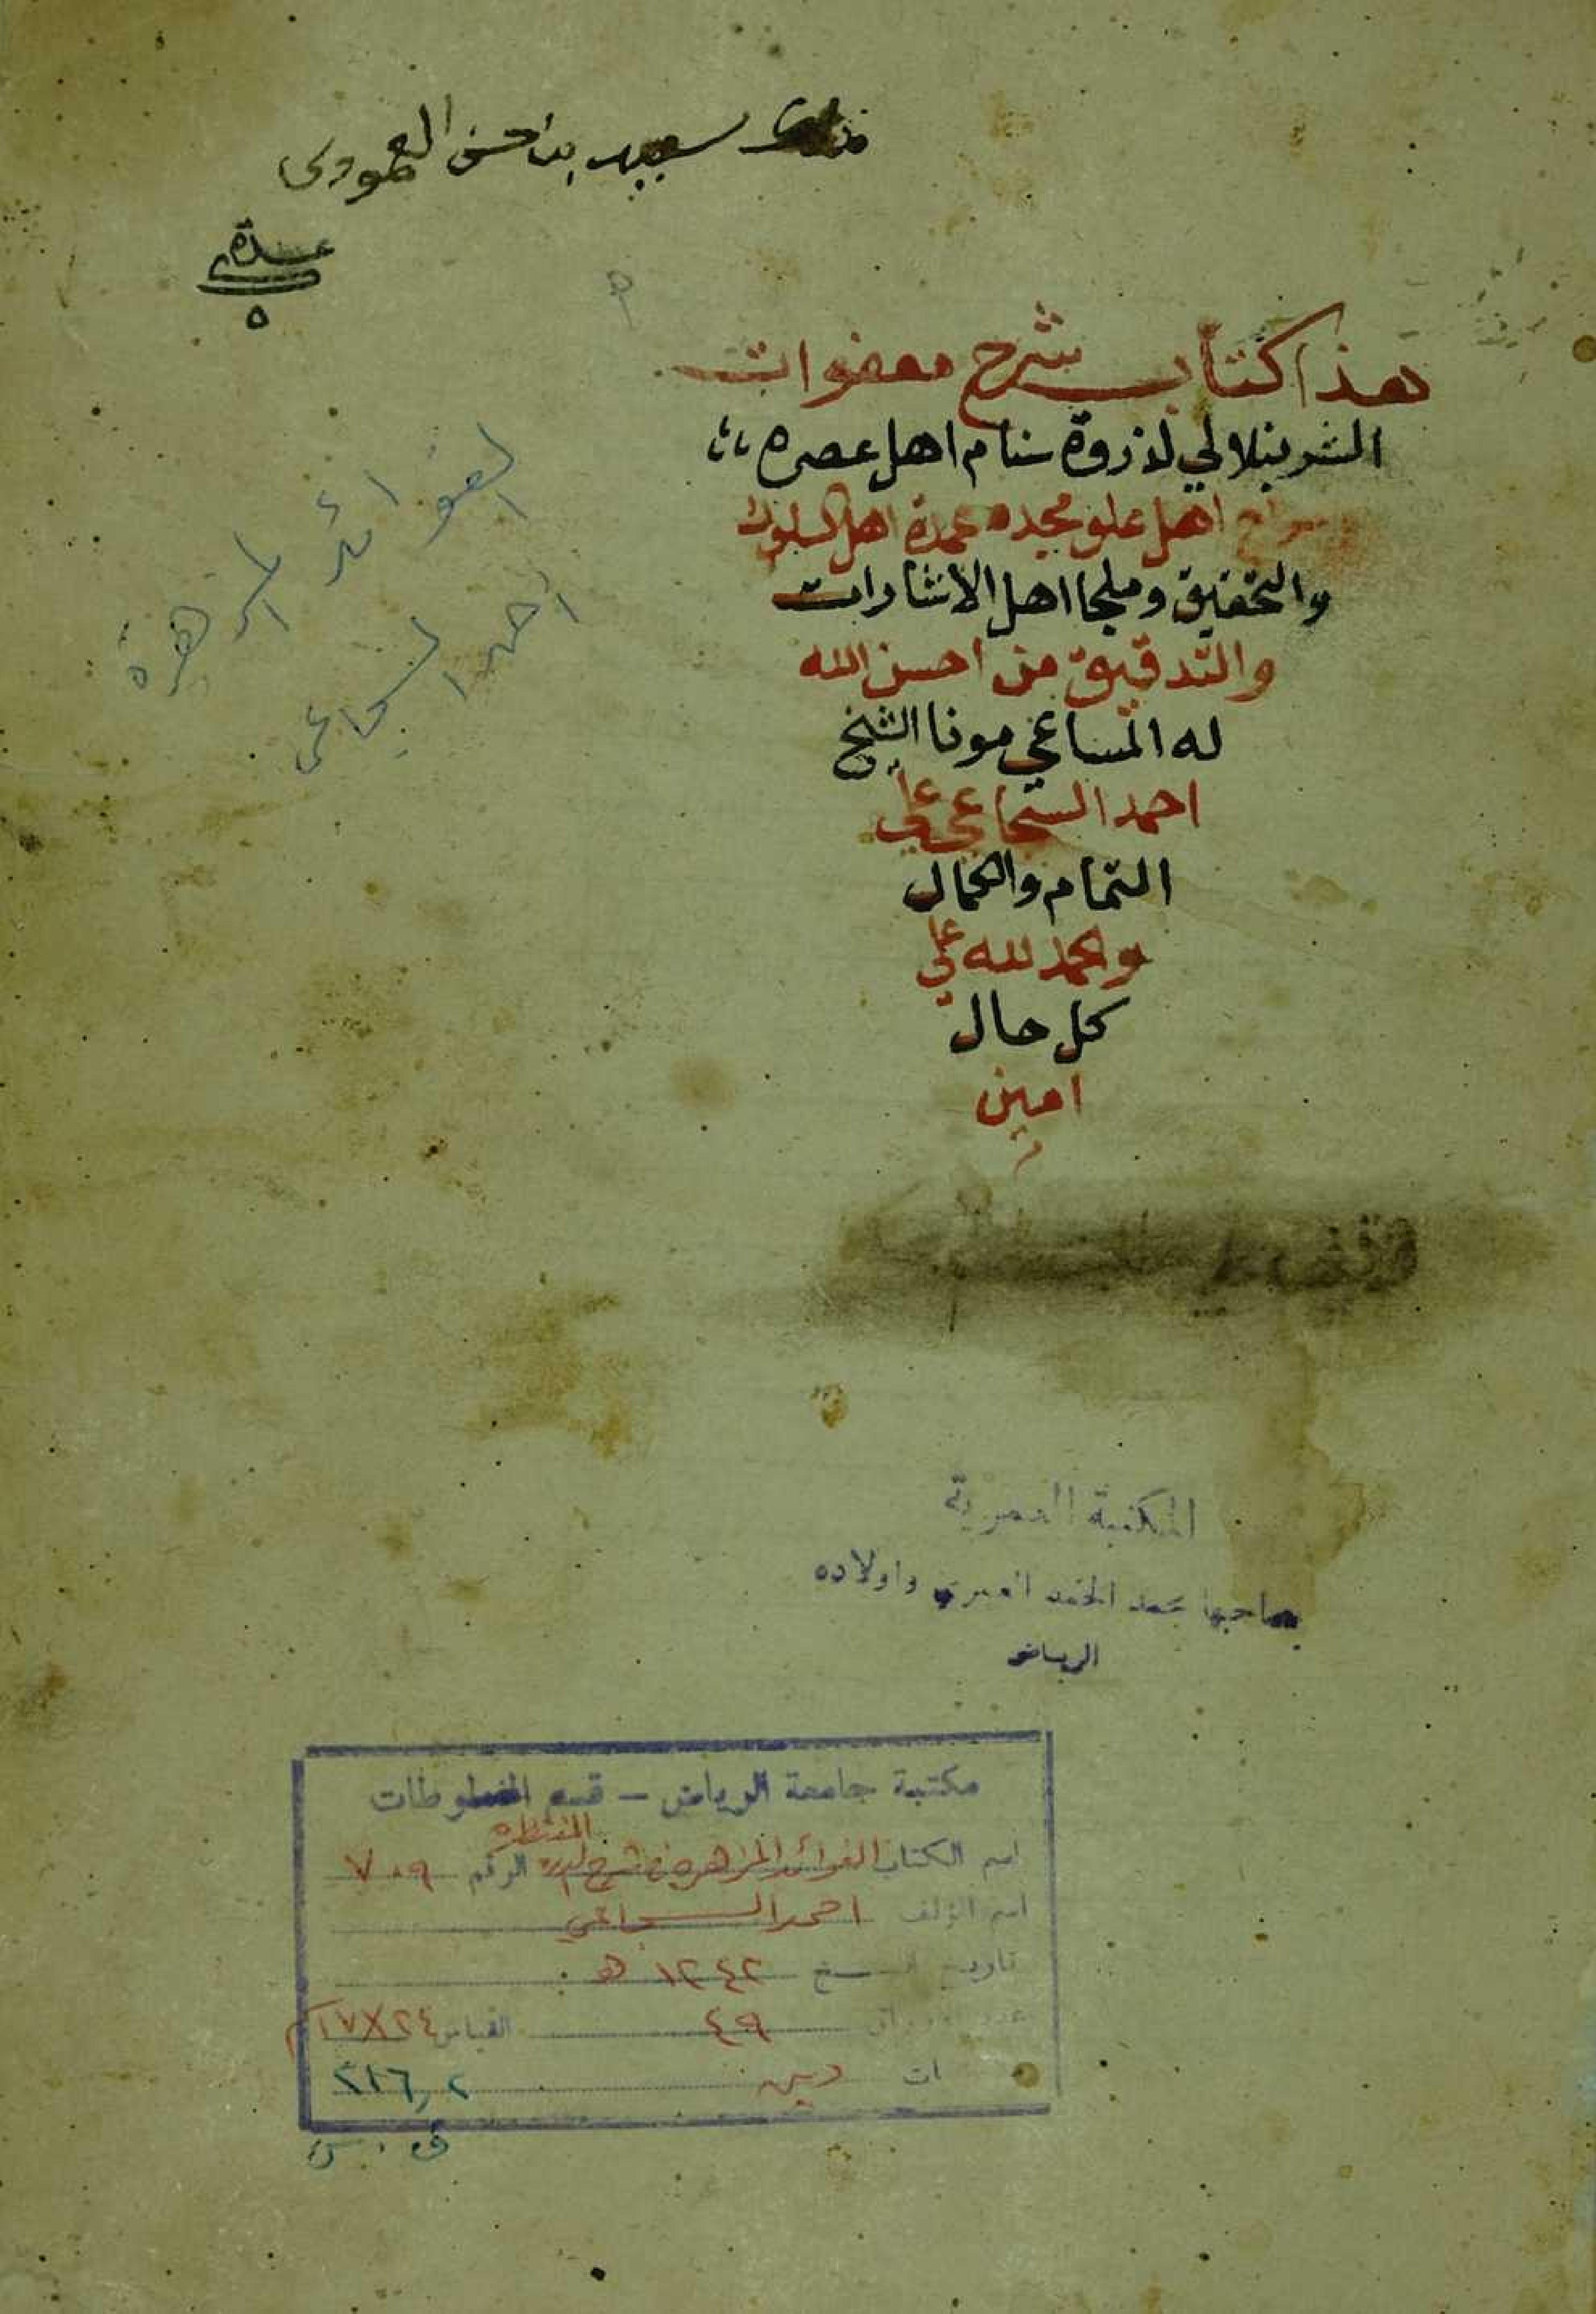 سعيد بن احسن العمودي
هذا كتاب شرح معفوات
الشرنبلالي لذروة سنام اهل عصره
اهل علو مجده عمدة اهل السلوك
والتحقيق وملجا اهل الاشارات
والتدقيق من احسن الله
له المساعي مونا الشيخ
احمد السجاعي علي
التمام والكمال
والحمد لله علي
كل حال
امين
الفوائد المزهرة
احمد السجاعي
المكتبة العمرية
صاحبها عبد الحمد العمري واولاده
الرياض
مكتبة جامعة الرياض - قسم المخطوطات
اسم الكتاب الفوائد المزهرة في شرح الدرة المنتظره الرقم ٧٠٩
اسم المؤلف احمد السجاعي
تاريخ النسخ ١٢٤٢ هـ
عدد الاوراق ٤٩ القياس ٢٤×١٧
ات ديني ٢١٦,٢